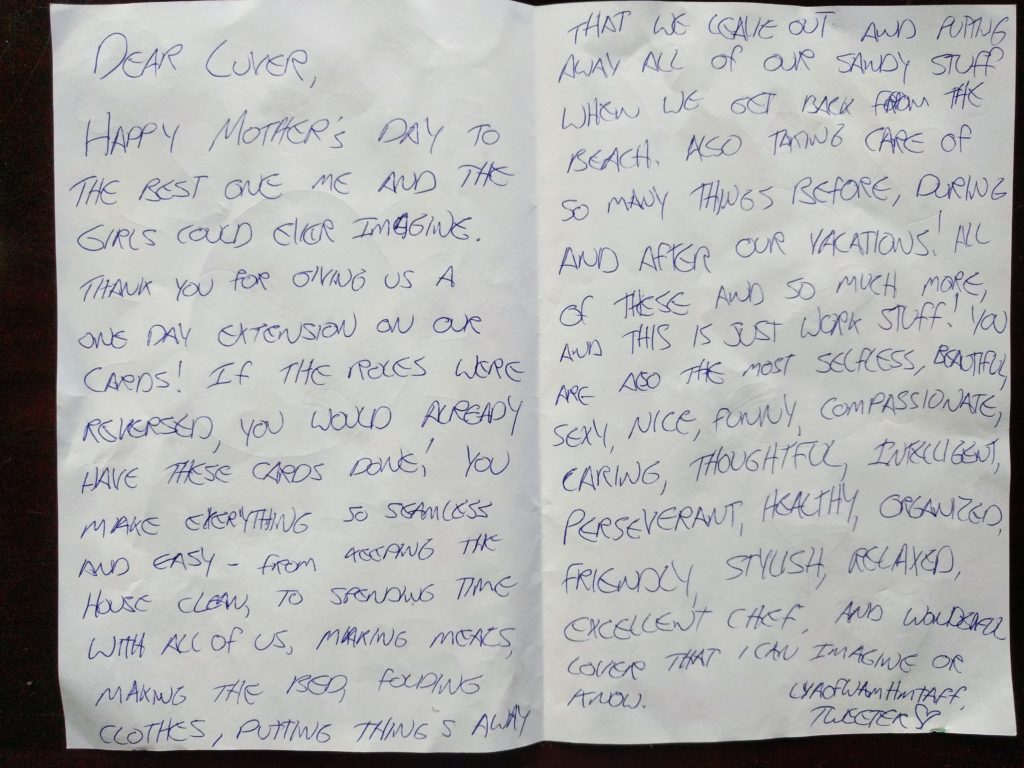 DEAR LOVER,
HAPPY MOTHER'S DAY TO
THE BEST ONE ME AND THE
GIRLS COULD EVER IMAGINE.
THANK YOU FOR GIVING US A
ONE DAY EXTENSION ON OUR
CARDS! IF THE ROLES WERE
REVERSED, YOU WOULD ALREADY
HAVE THESE CARDS DONE! YOU
MAKE EVERYTHING SO SEAMLESS
AND EASY - FROM KEEPING THE
HOUSE CLEAN, TO SPENDING TIME
WITH ALL OF US, MAKING MEALS,
MAKING THE BED, FOLDING
CLOTHES, PUTTING THING'S AWAY
THAT WE LEAVE OUT AND PUTTING
AWAY ALL OF OUR SANDY STUFF
WHEN WE GET BACK FROM THE
BEACH. ALSO TAKING CARE OF
SO MANY THINGS BEFORE, DURING
AND AFTER OUR VACATIONS! ALL
OF THESE AND SO MUCH MORE,
AND THIS IS JUST WORK STUFF! YOU
ARE ALSO THE MOST SELFLESS, BEAUTIFUL,
SEXY, NICE, FUNNY, COMPASSIONATE,
CARING, THOUGHTFUL, INTELLIGENT,
PERSEVERANT, HEALTHY, ORGANIZED,
FRIENDLY, STYLISH, RELAXED,
EXCELLENT CHEF, AND WONDERFUL
LOVER THAT I CAN IMAGINE OR
KNOW.
TWEETER